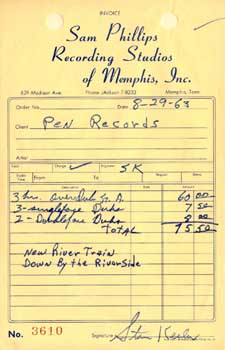 INVOICE
Sam Phillips
Recording Studios
of Memphis, Inc.
639 Madison Ave. Phone JAckson 7-8233 Memphis, Tenn.
Order No. Date 8-29-63
Client Pen Records
Artist
Charge ✓ Engineer SK
3 hrs. overdub 60 00
3- Dubs 7 50
2- Dubs 8 00
TOTAL 75 50
New River Train
Down By the RiverSide
No. 3610 Signature